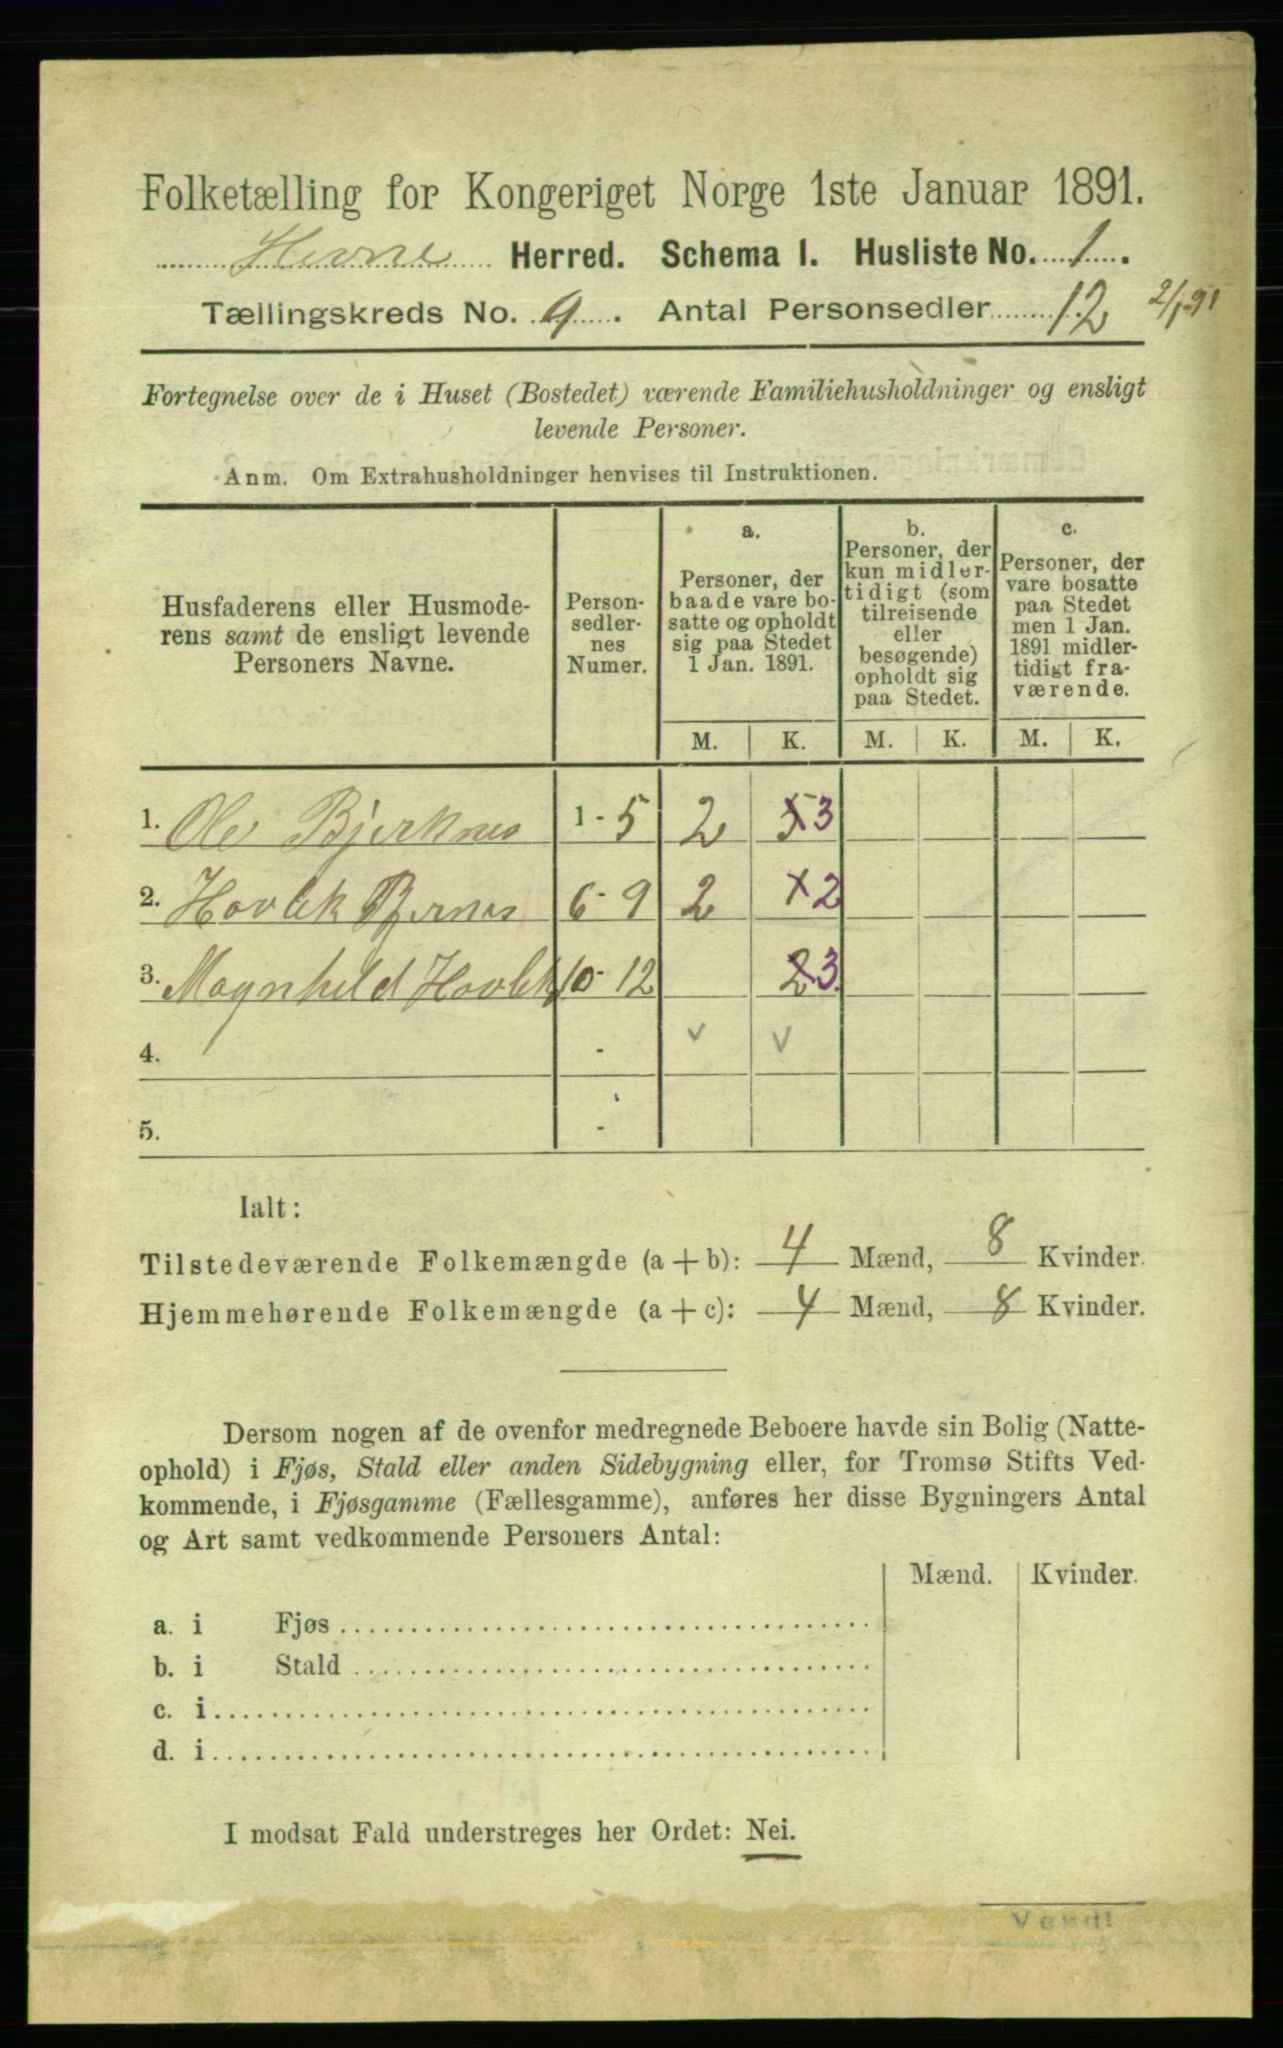 Folketælling for Kongeriget Norge 1ste Januar 1891.
Hevne Herred. Schema I. Husliste No. 1.
Tællingskreds No. 9. Antal Personsedler 12 2/1 91
Fortegnelse over de i Huset (Bostedet) værende Familiehusholdninger og ensligt
levende Personer.
Anm. Om Extrahusholdninger henvises til Instruktionen.
Husfaderens eller Husmode-
rens samt de ensligt levende
Personers Navne.
Person-
sedler-
nes
Numer.
a.
Personer, der
baade vare bo-
satte og opholdt
sig paa Stedet
1 Jan. 1891.
b.
Personer, der
kun midler-
tidigt (som
tilreisende
eller
besøgende)
opholdt sig
paa Stedet.
c.
Personer, der
vare bosatte
paa Stedet
men 1 Jan.
1891 midler-
tidigt fra-
værende.
M. K. M. K. M. K.
1. Ole Bjerknes 1 - 5 2 3
2. Hovlek 6 - 9 2 2
3. Magnhild Hovlek 10 - 12 2 3
4. -
5. -
Ialt:
Tilstedeværende Folkemængde (a + b): 4 Mænd, 8 Kvinder.
Hjemmehørende Folkemængde (a + c): 4 Mænd, 8 Kvinder.
Dersom nogen af de ovenfor medregnede Beboere havde sin Bolig (Natte-
ophold) i Fjøs, Stald eller anden Sidebygning eller, for Tromsø Stifts Ved-
kommende, i Fjøsgamme (Fællesgamme), anføres her disse Bygningers Antal
og Art samt vedkommende Personers Antal:
Mænd. Kvinder.
a. i Fjøs
b. i Stald
c. i
d. i
I modsat Fald understreges her Ordet: Nei.
Vend!